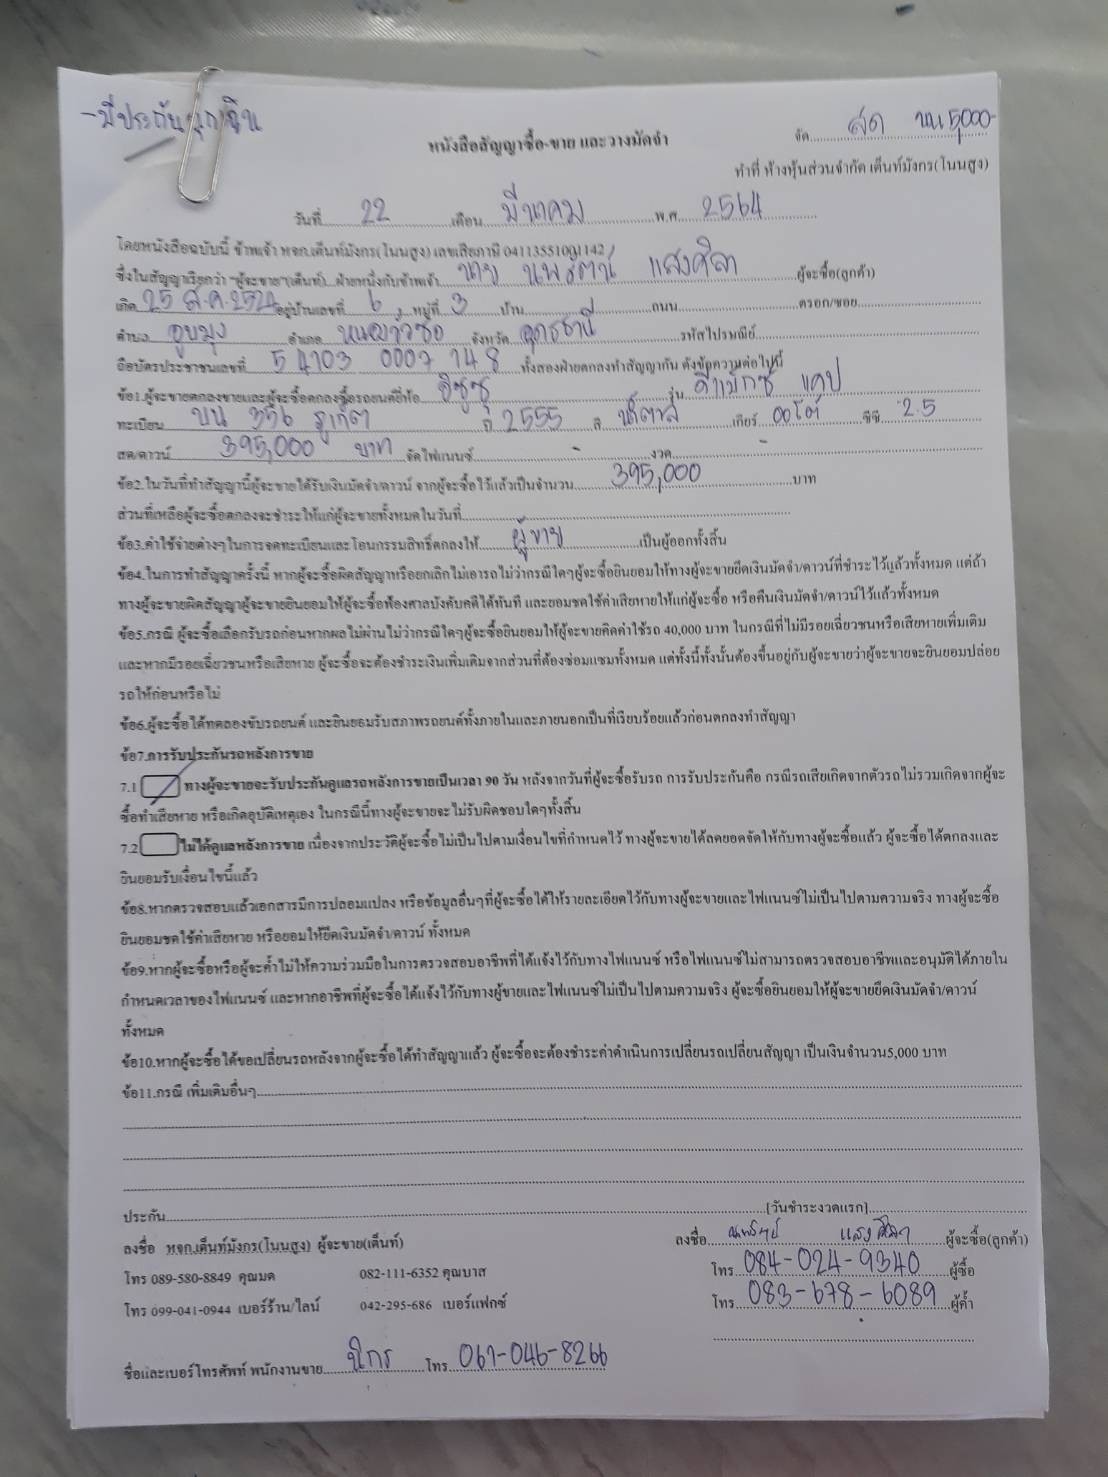 -มีประกันฉุกเฉิน
จัด สด นน 5,000-
หนังสือสัญญาซื้อ-ขาย และวางมัดจำ
ทำที่ ห้างหุ้นส่วนจำกัด เต็นท์มังกร(โนนสูง)
วันที่ 22 เดือน มีนาคม พ.ศ. 2564
โดยหนังสือฉบับนี้ ข้าพเจ้า หจก.เต็นท์มังกร(โนนสูง) เลขเสียภาษี 04113551001142
ซึ่งในสัญญาเรียกว่า "ผู้จะขาย"(เต็นท์) ฝ่ายหนึ่งกับข้าพเจ้า นาย นพรัตน์ แสงศิลา ผู้จะซื้อ(ลูกค้า)
เกิด 25 ส.ค. 2524 อยู่บ้านเลขที่ 6 หมู่ที่ 3 บ้าน - ถนน ตรอก/ซอย
ตำบล อูบมุง อำเภอ หนองวัวซอ จังหวัด อุดรธานี รหัสไปรษณีย์
ถือบัตรประชาชนเลขที่ 5 4103 0007 148 ทั้งสองฝ่ายตกลงทำสัญญากัน ดังข้อความต่อไปนี้
ข้อ1.ผู้จะขายตกลงขายและผู้จะซื้อตกลงซื้อรถยนต์ยี่ห้อ อิซูซุ รุ่น ดีแม็กซ์ แคป
ทะเบียน บน 356 ภูเก็ต ปี 2555 สี น้ำตาล เกียร์ ออโต้ ซีซี 2.5
สด/ดาวน์ 395,000 บาท จัดไฟแนนซ์ - งวด -
ข้อ2.ในวันที่ทำสัญญานี้ผู้จะขายได้รับเงินมัดจำ/ดาวน์ จากผู้จะซื้อไว้แล้วเป็นจำนวน 395,000 บาท
ส่วนที่เหลือผู้จะซื้อตกลงจะชำระให้แก่ผู้จะขายทั้งหมดในวันที่
ข้อ3.ค่าใช้จ่ายต่างๆในการจดทะเบียนและโอนกรรมสิทธิ์ตกลงให้ ผู้ขาย เป็นผู้ออกทั้งสิ้น
ข้อ4.ในการทำสัญญาครั้งนี้ หากผู้จะซื้อผิดสัญญาหรือยกเลิกไม่เอารถ ไม่ว่ากรณีใดๆผู้จะซื้อยินยอมให้ทางผู้จะขายยึดเงินมัดจำ/ดาวน์ที่ชำระไว้แล้วทั้งหมด แต่ถ้า
ทางผู้จะขายผิดสัญญาผู้จะขายยินยอมให้ผู้จะซื้อฟ้องศาลบังคับคดีได้ทันที และยอมชดใช้ค่าเสียหายให้แก่ผู้จะซื้อ หรือคืนเงินมัดจำ/ดาวน์ไว้แล้วทั้งหมด
ข้อ5.กรณี ผู้จะซื้อเลือกรับรถก่อนหากผลไม่ผ่าน ไม่ว่ากรณีใดๆผู้จะซื้อยินยอมให้ผู้จะขายคิดค่าใช้รถ 40,000 บาท ในกรณีที่ไม่มีรอยเฉี่ยวชนหรือเสียหายเพิ่มเติม
และหากมีรอยเฉี่ยวชนหรือเสียหาย ผู้จะซื้อจะต้องชำระเงินเพิ่มเติมจากส่วนที่ต้องซ่อมแซมทั้งหมด แต่ทั้งนี้ทั้งนั้นต้องขึ้นอยู่กับผู้จะขายว่าผู้จะขายจะยินยอมปล่อย
รถให้ก่อนหรือไม่
ข้อ6.ผู้จะซื้อได้ทดลองขับรถยนต์ และยินยอมรับสภาพรถยนต์ทั้งภายในและภายนอกเป็นที่เรียบร้อยแล้วก่อนตกลงทำสัญญา
ข้อ7.การรับประกันรถหลังการขาย
7.1 ทางผู้จะขายจะรับประกันดูแลรถหลังการขายเป็นเวลา 90 วัน หลังจากวันที่ผู้จะซื้อรับรถ การรับประกันคือ กรณีรถเสียเกิดจากตัวรถ ไม่รวมเกิดจากผู้จะ
ซื้อทำเสียหาย หรือเกิดอุบัติเหตุเอง ในกรณีนี้ทางผู้จะขายจะ ไม่รับผิดชอบใดๆทั้งสิ้น
7.2 ไม่ได้ดูแลหลังการขาย เนื่องจากประวัติผู้จะซื้อไม่เป็นไปตามเงื่อนไขที่กำหนดไว้ ทางผู้จะขายได้ลดยอดจัดให้กับทางผู้จะซื้อแล้ว ผู้จะซื้อได้ตกลงและ
ยินยอมรับเงื่อนไขนี้แล้ว
ข้อ8.หากตรวจสอบแล้วเอกสารมีการปลอมแปลง หรือข้อมูลอื่นๆที่ผู้จะซื้อได้ให้รายละเอียดไว้กับทางผู้จะขายและไฟแนนซ์ไม่เป็นไปตามความจริง ทางผู้จะซื้อ
ยินยอมชดใช้ค่าเสียหาย หรือยอมให้ยึดเงินมัดจำ/ดาวน์ ทั้งหมด
ข้อ9.หากผู้จะซื้อหรือผู้จะค้ำไม่ให้ความร่วมมือในการตรวจสอบอาชีพที่ได้แจ้งไว้กับทางไฟแนนซ์ หรือไฟแนนซ์ไม่สามารถตรวจสอบอาชีพและอนุมัติได้ภายใน
กำหนดเวลาของไฟแนนซ์ และหากอาชีพที่ผู้จะซื้อได้แจ้งไว้กับทางผู้ขายและไฟแนนซ์ไม่เป็นไปตามความจริง ผู้จะซื้อยินยอมให้ผู้จะขายยึดเงินมัดจำ/ดาวน์
ทั้งหมด
ข้อ10.หากผู้จะซื้อได้ขอเปลี่ยนรถหลังจากผู้จะซื้อได้ทำสัญญาแล้ว ผู้จะซื้อจะต้องชำระค่าดำเนินการเปลี่ยนรถเปลี่ยนสัญญา เป็นเงินจำนวน5,000 บาท
ข้อ11.กรณี เพิ่มเติมอื่นๆ
ประกัน [วันชำระงวดแรก]
ลงชื่อ หจก.เต็นท์มังกร(โนนสูง) ผู้จะขาย(เต็นท์) ลงชื่อ นพรัตน์ แสงศิลา ผู้จะซื้อ(ลูกค้า)
โทร 089-580-8849 คุณมด 082-111-6352 คุณบาส โทร 084-024-9340 ผู้ซื้อ
โทร 099-041-0944 เบอร์ร้าน/ไลน์ 042-295-686 เบอร์แฟกซ์ โทร 083-678-6089 ผู้ค้ำ
ชื่อและเบอร์โทรศัพท์ พนักงานขาย นิกร โทร 061-046-8266